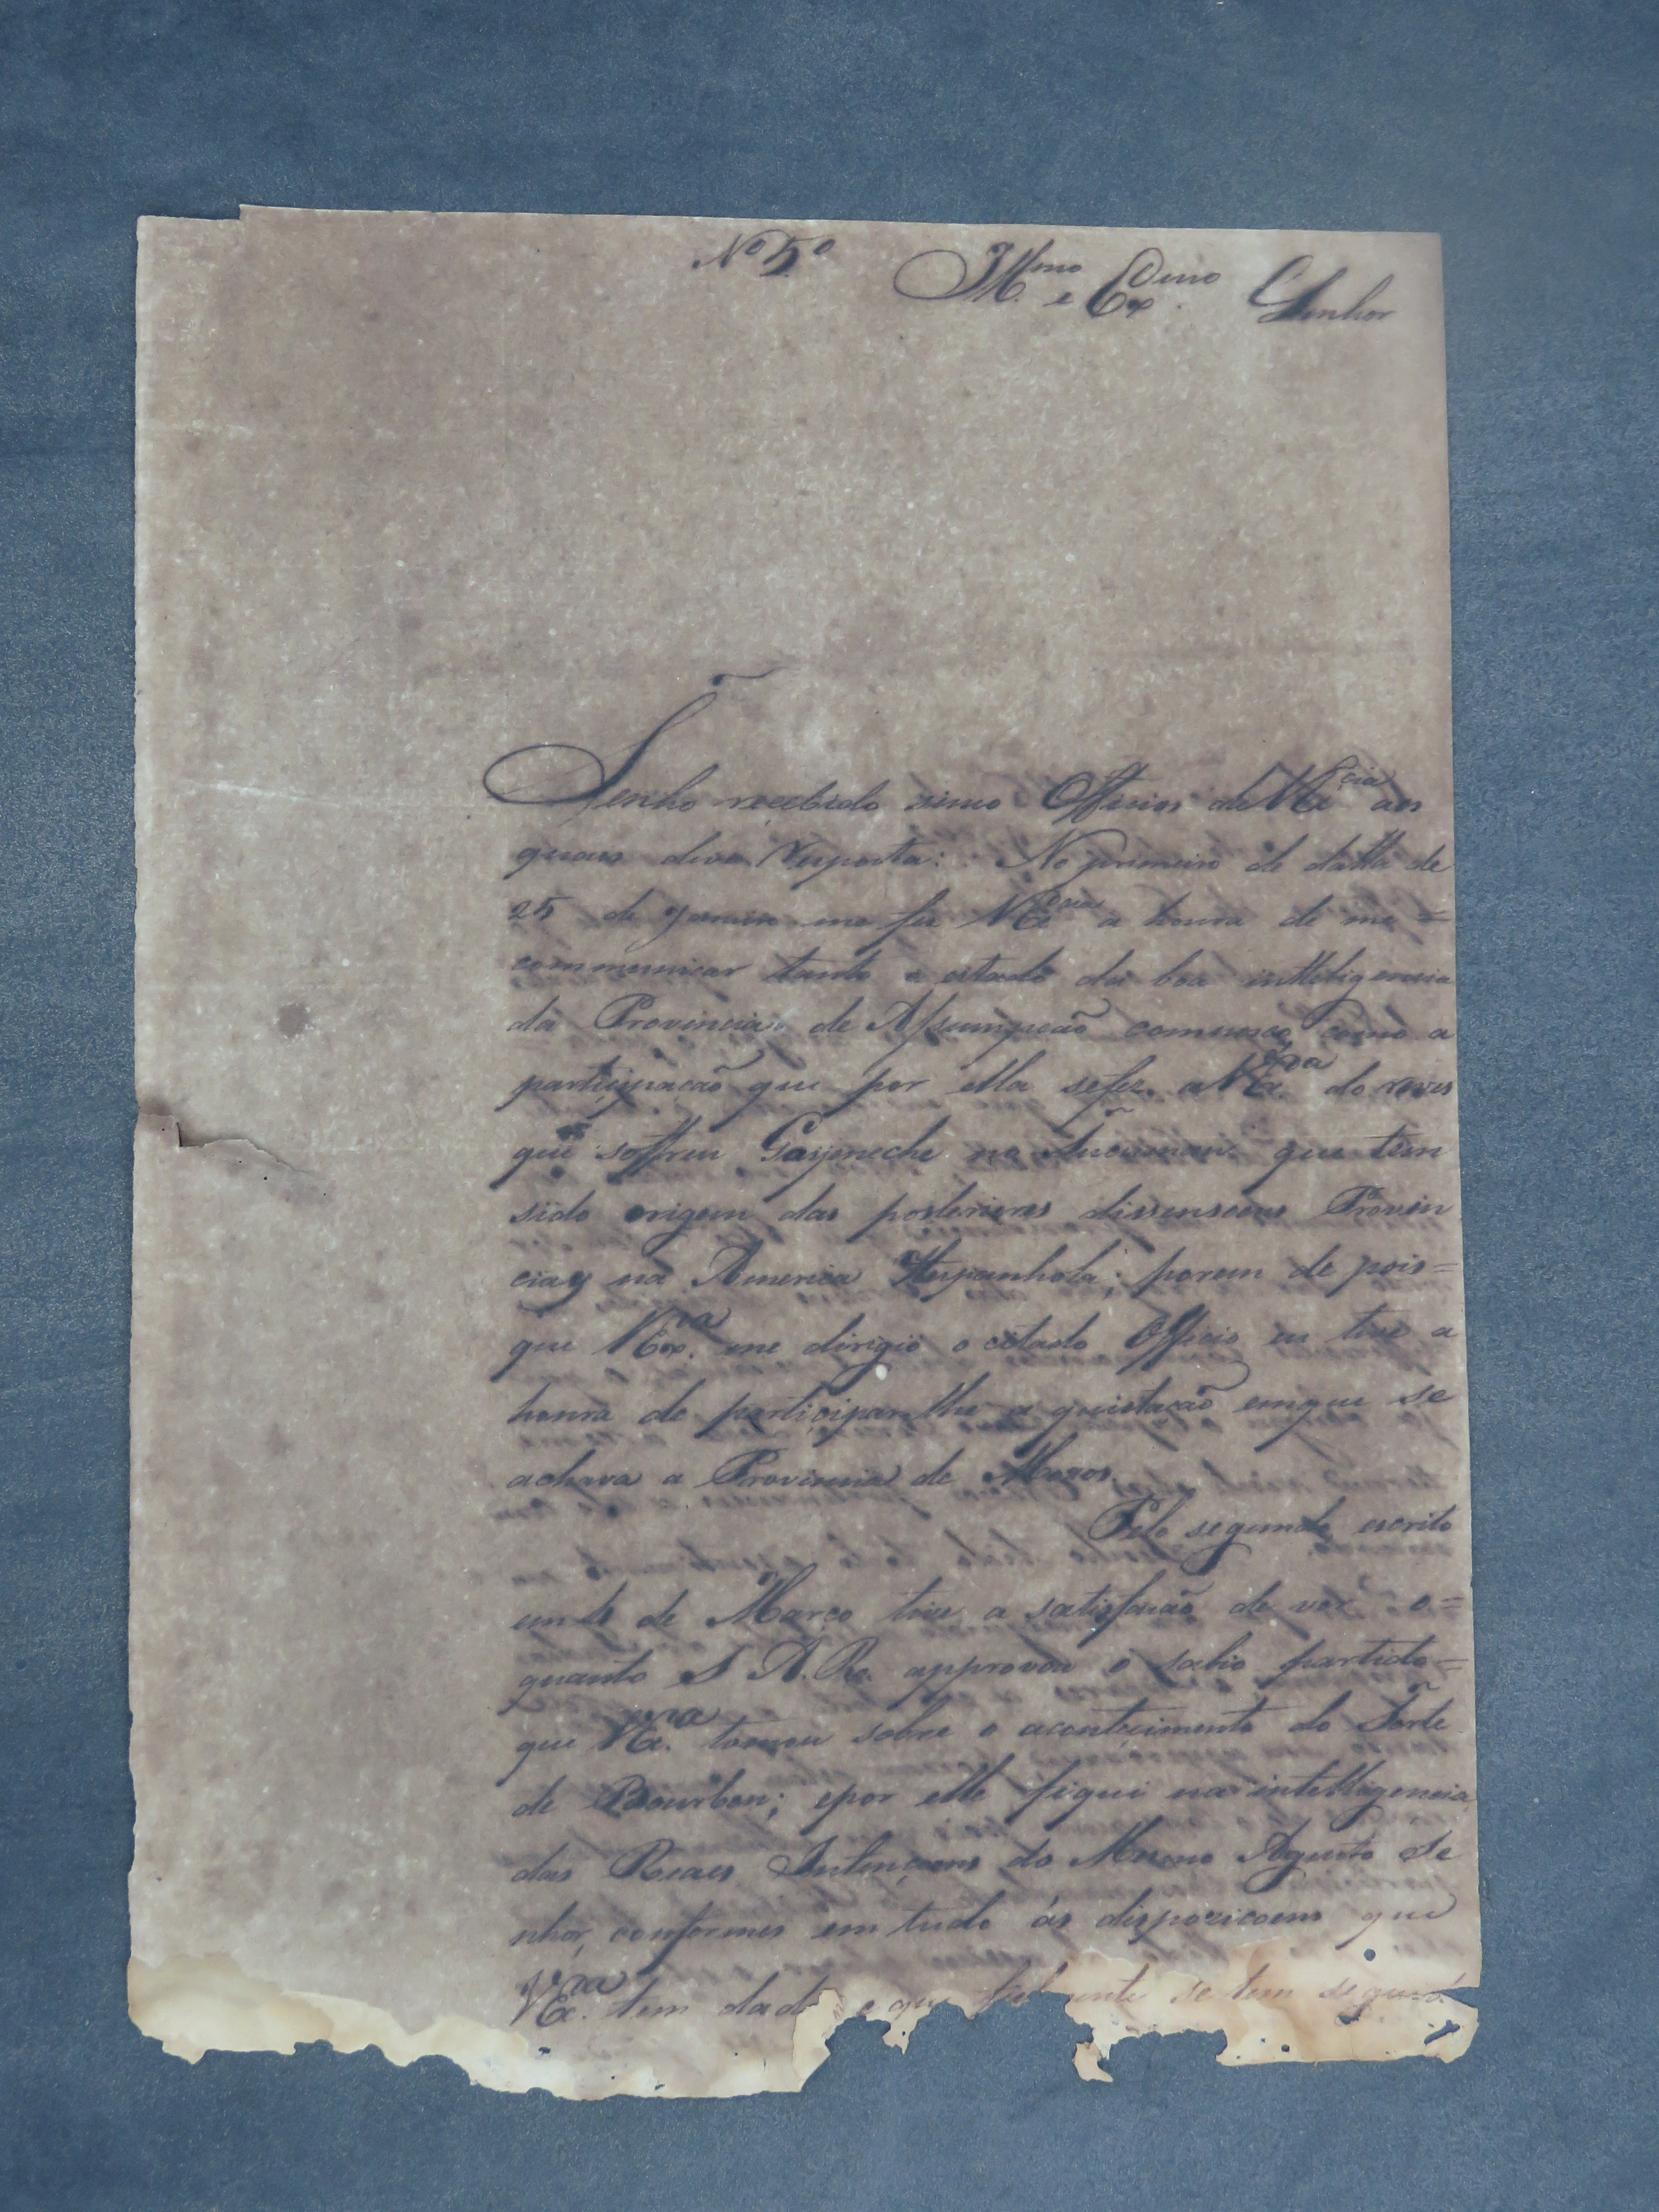 Nº 5º Illmo e Exmo Senhor
Tenho recebido sinco Officios de VEcia aos
quaes devo resposta: No primeiro de datta de
25 de Janeiro me fez VExcia a honra de me=
communicar tanto o estado da boa intteligencia
da Provincia de Assumpcaõ comnosco, como a
participacaõ que por ella sefez a VExa do reves
que soffreu Goyeneche no Tucuman que tem
sido origem das posteriores dissensoens Provin
ciaes na America Hespanhola; porem de pois=
que VExa me dirigio o citado Officio eu tive a
honra de participar lhe a quietaçaõ emque se
achava a Provincia de Moxos.
Pelo segundo escrito
em de Março tive a satisfacaõ de ver o=
quanto S A. R. approvou o sabio partido=
que VExa tomou sobre o acontecimento do Forte
de Bourbon; epor elle fiquei na intelligencia
das Reaes Intençoens do Mesmo Agusto Se
nhor, conformes em tudo ás dispozicoens que
VExa tem dado e que fielmente se tem seguido